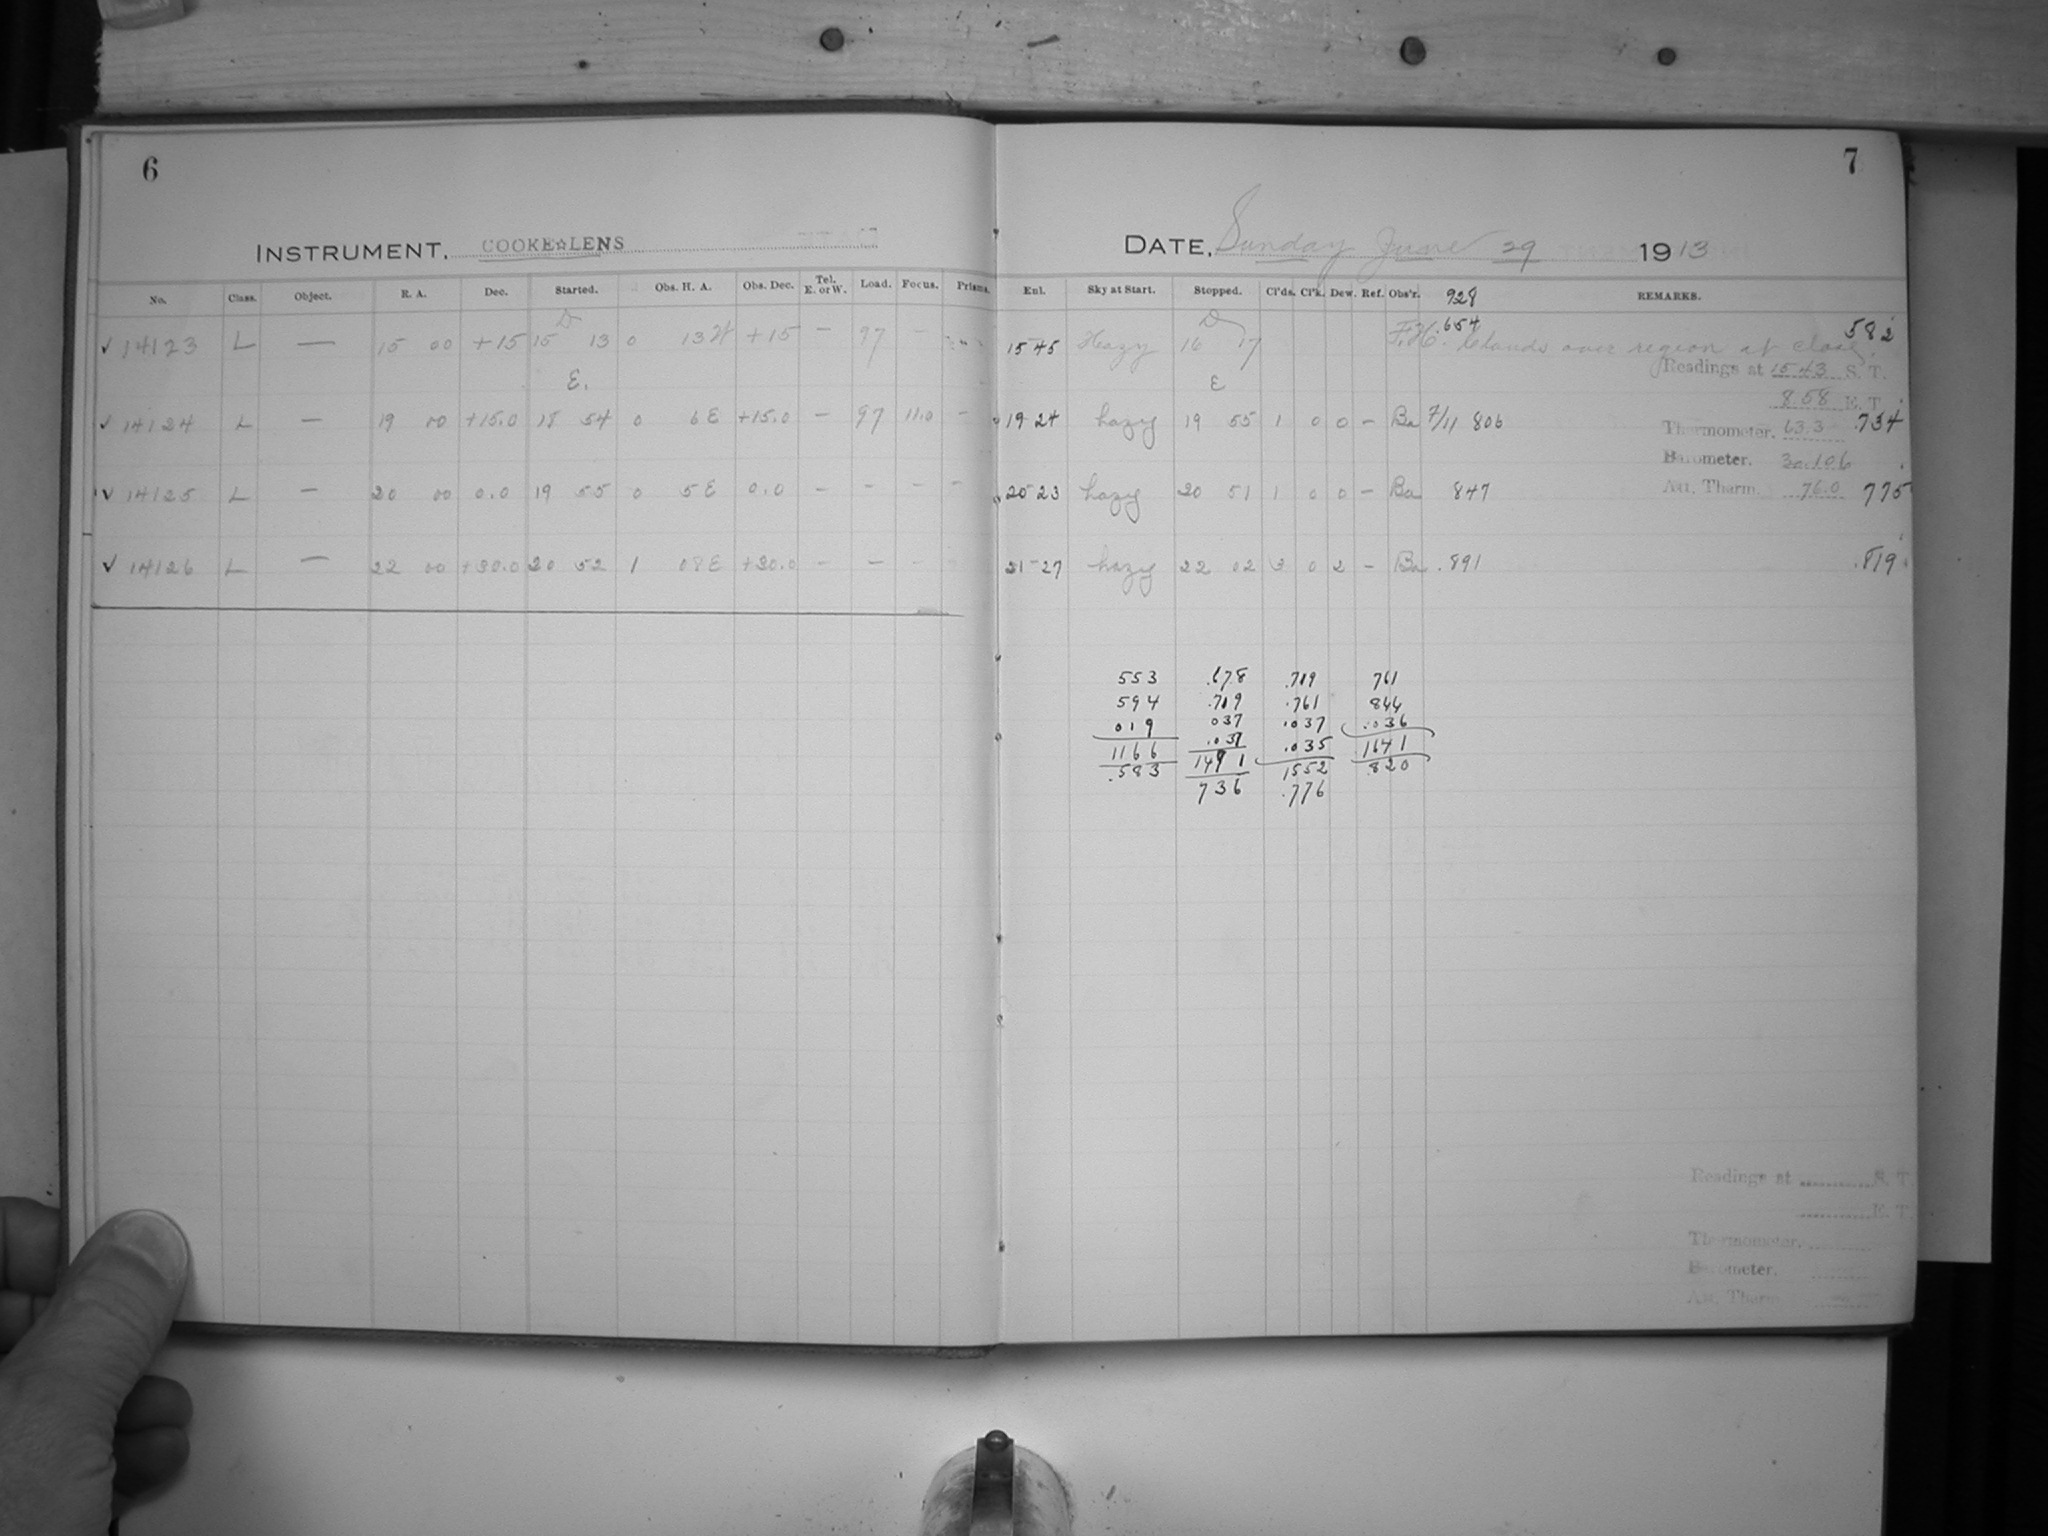 6
INSTRUMENT. COOKE☆LENS
No. Class. Object. R. A. Dec. Started. Obs. H. A. Obs. Dec. Tel. E. or W. Load. Focus. Prisms.
D
✓ 14123 L — 15 00 +15 15 13 0 13 W +15 — 97 —
E.
✓ 14124 L — 19 00 +15.0 18 54 0 6 E +15.0 — 97 11.0 —
✓ 14125 L — 20 00 0.0 19 55 0 5 E 0.0 — — — —
✓ 14126 L — 22 00 +30.0 20 52 1 08 E +30.0 — — —
7
DATE, Sunday June 29 1913
Exl. Sky at Start. Stopped. Cl'ds. Cl'k. Dew. Ref. Obs'r. 928 REMARKS.
D .654 582
15 45 Hazy 16 17 F.H. Clouds over region at close.
Readings at 15 43 S. T.
E 8.58 E. T.
19 24 hazy 19 55 1 0 0 — Ba 7/11 806
Thermometer. 63.3 .734
Barometer. 30.106
20 23 hazy 20 51 1 0 0 — Ba 847 Att. Therm. 76.0 775
21 27 hazy 22 02 3 0 2 — Ba .891 .819
553 .678 .719 761
594 .719 .761 844
019 037 .037 .036
1166 .037 .035 1641
.583 1491 1552 .820
736 .776
Readings at S. T.
E. T.
Thermometer.
Barometer.
Att. Therm.